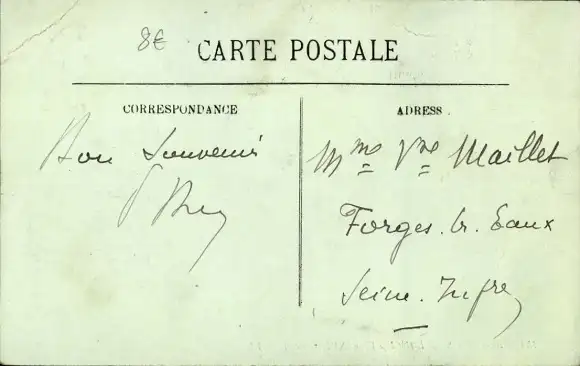 8€
CARTE POSTALE
CORRESPONDANCE
Bon Souvenir
ADRESS
Mme Vve Maillet
Forges. les. Eaux
Seine. Infre